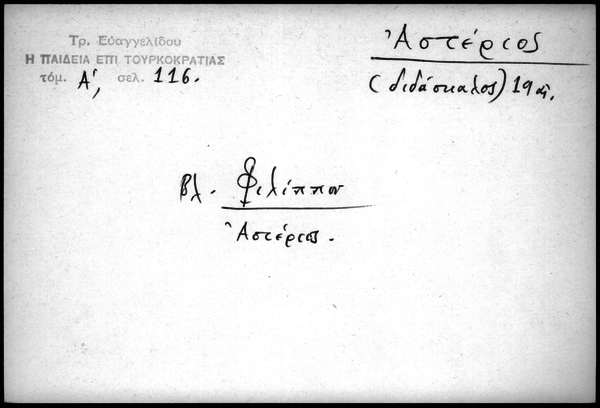 Τρ. Εὐαγγελίδου
Η ΠΑΙΔΕΙΑ ΕΠΙ ΤΟΥΡΚΟΚΡΑΤΙΑΣ
τόμ. Α΄, σελ. 116.
Ἀστέριος
(διδάσκαλος) 19 αἰ.
Βλ. Φιλίππου
Ἀστέριος.